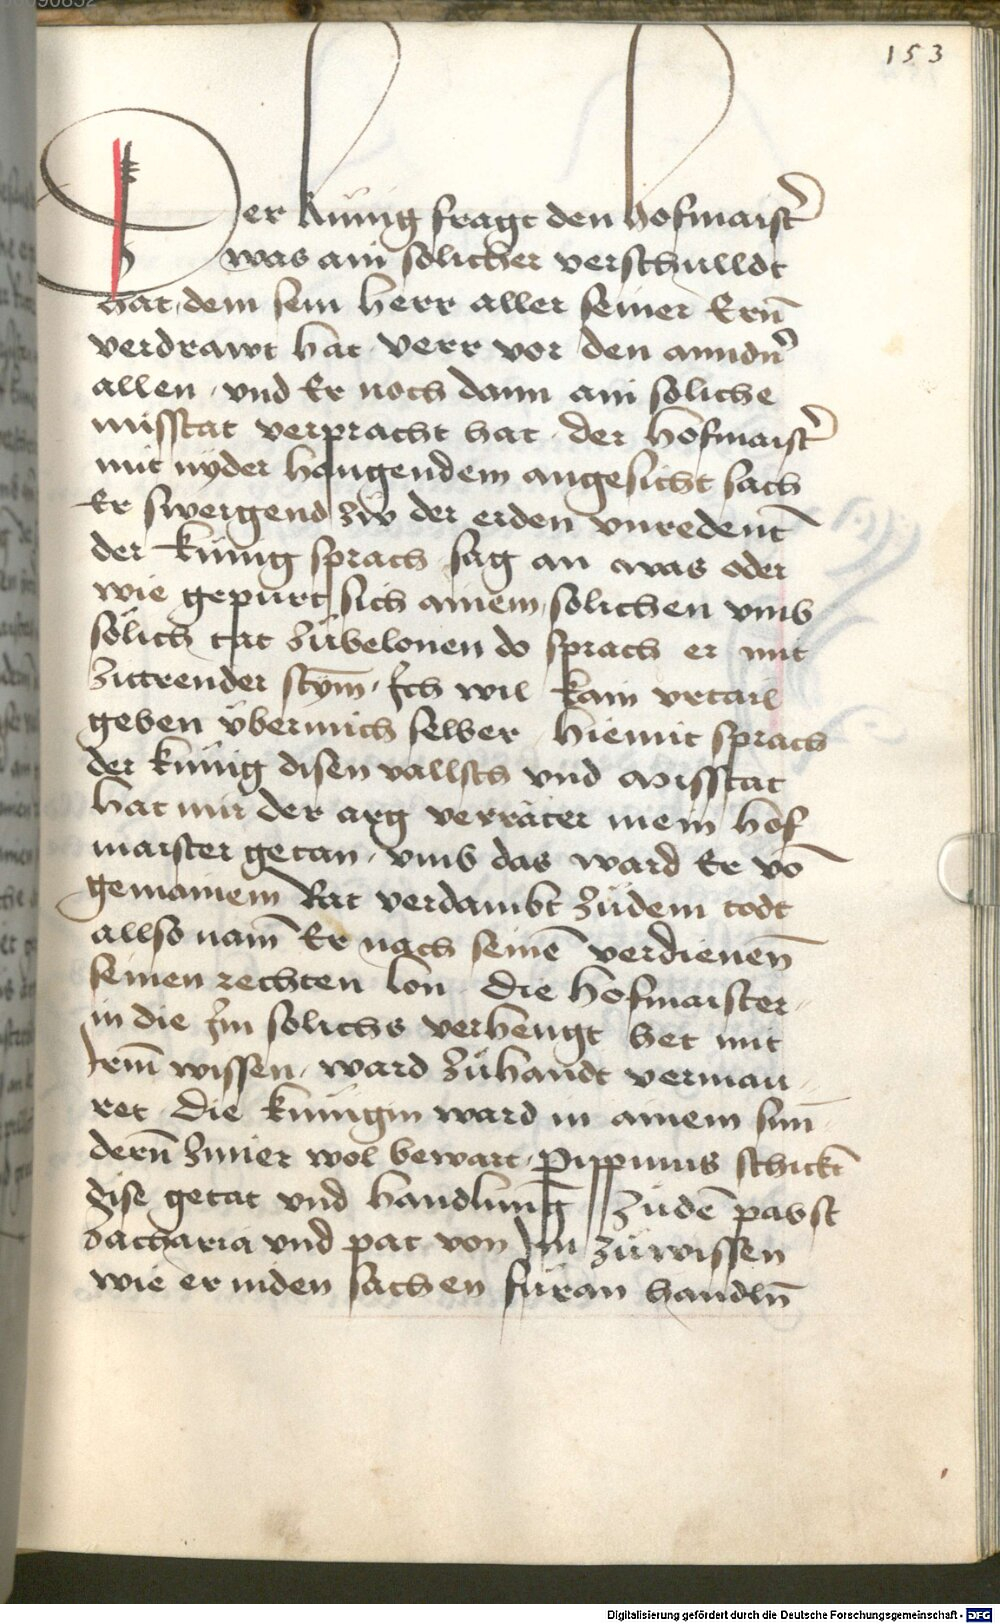 153
Der kunig fragt den hofmaist̄
was ain solicher verschulldt
hat, dem sein herr aller seiner Ern̄
verdrawt hat verr vor den anndn̄
allen, vnd Er noch dann ain soliche
misstat verpracht hat der hofmaist̄
mit nyder hangendem angesicht sach
Er sweigend zw der erden vnredent
der kunig sprach sag an was oder
wie gepurt sich ainem solichen vmb
sölich tat zůbelonen do sprach er mit
zittrender stym̄. Ich wil kain vrtail
geben v̈bermich selber hiemit sprach
der künig disen vallsch vnd misstat
hat mir der arg verräter mein hof
maister getan, vmb das ward Er vō
gemainem Rat verdambt zůdem todt
allso nam̄ Er nach seinē verdienen̄
seinen rechten lon. die hofmaister
in die Im solichs verhengt het mit
Irem̄ wissen, ward zůhandt vermau
ret die künigin ward in ainem sun̄
dern̄ zimer wol bewart, Pippinus schickt
dise getat vnd handlung zůdē pabst
Zacharia vnd pat von Im zůwissen
wie er inden sachen füran handln̄
Digitalisierung gefördert durch die Deutsche Forschungsgemeinschaft - DFG